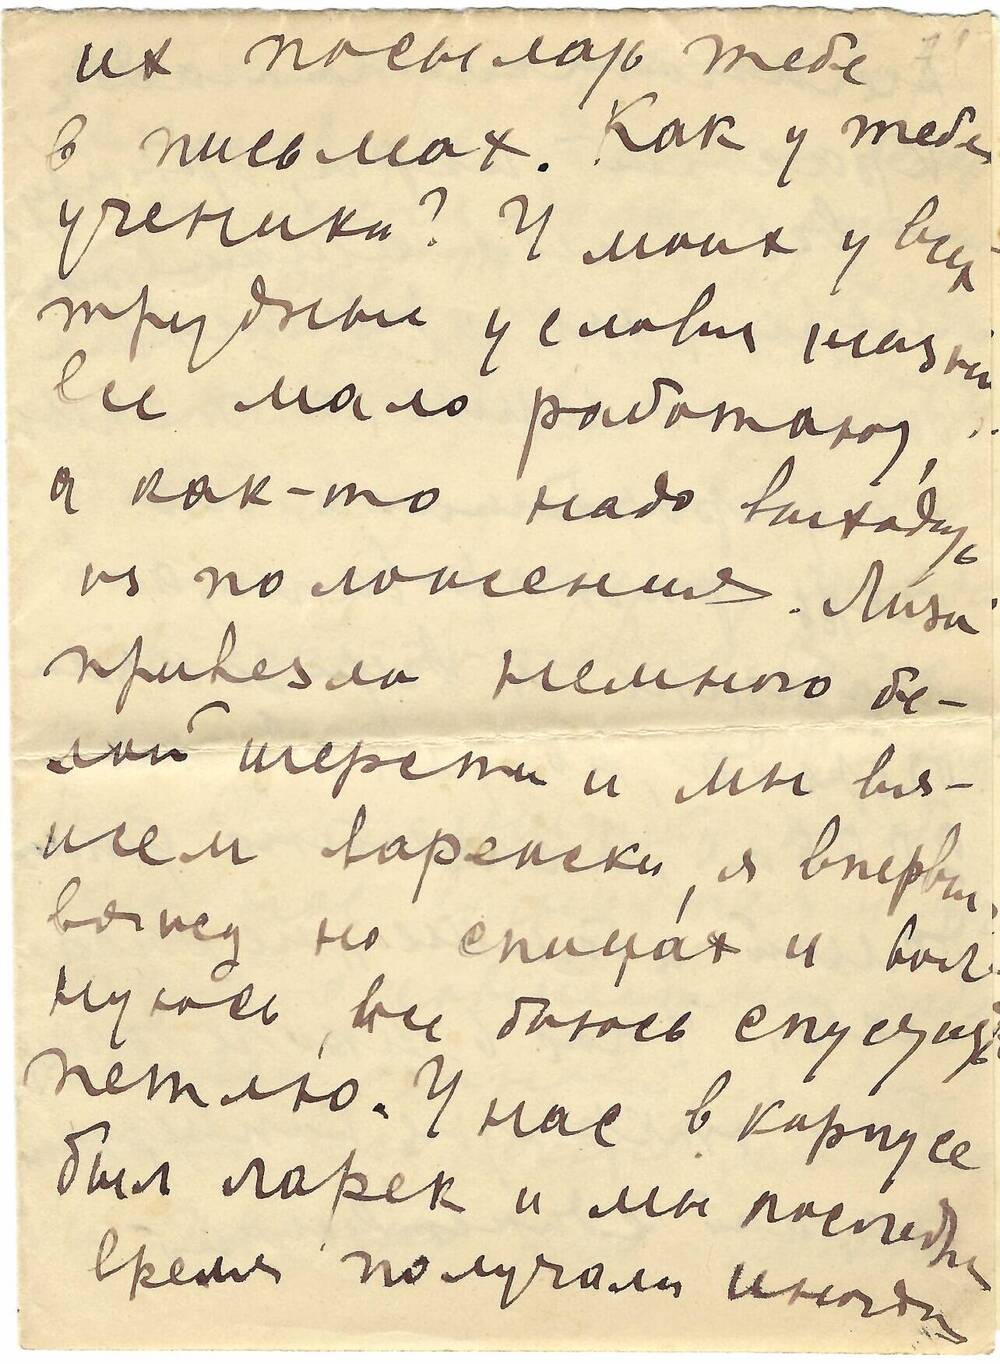 их посылаю тебе
в письмах. Как у тебя
ученики? У моих у всех
трудные условия жизни
все мало работают,
а как-то надо выходить
из положения. Лиза
привезла немного бе-
лой шерсти и мы вя-
жем варежки, я впервые
вяжу на спицах и вол-
нуюсь, все боюсь спустить
петлю. У нас в корпусе
был ларек и мы последнее
время получали иногда